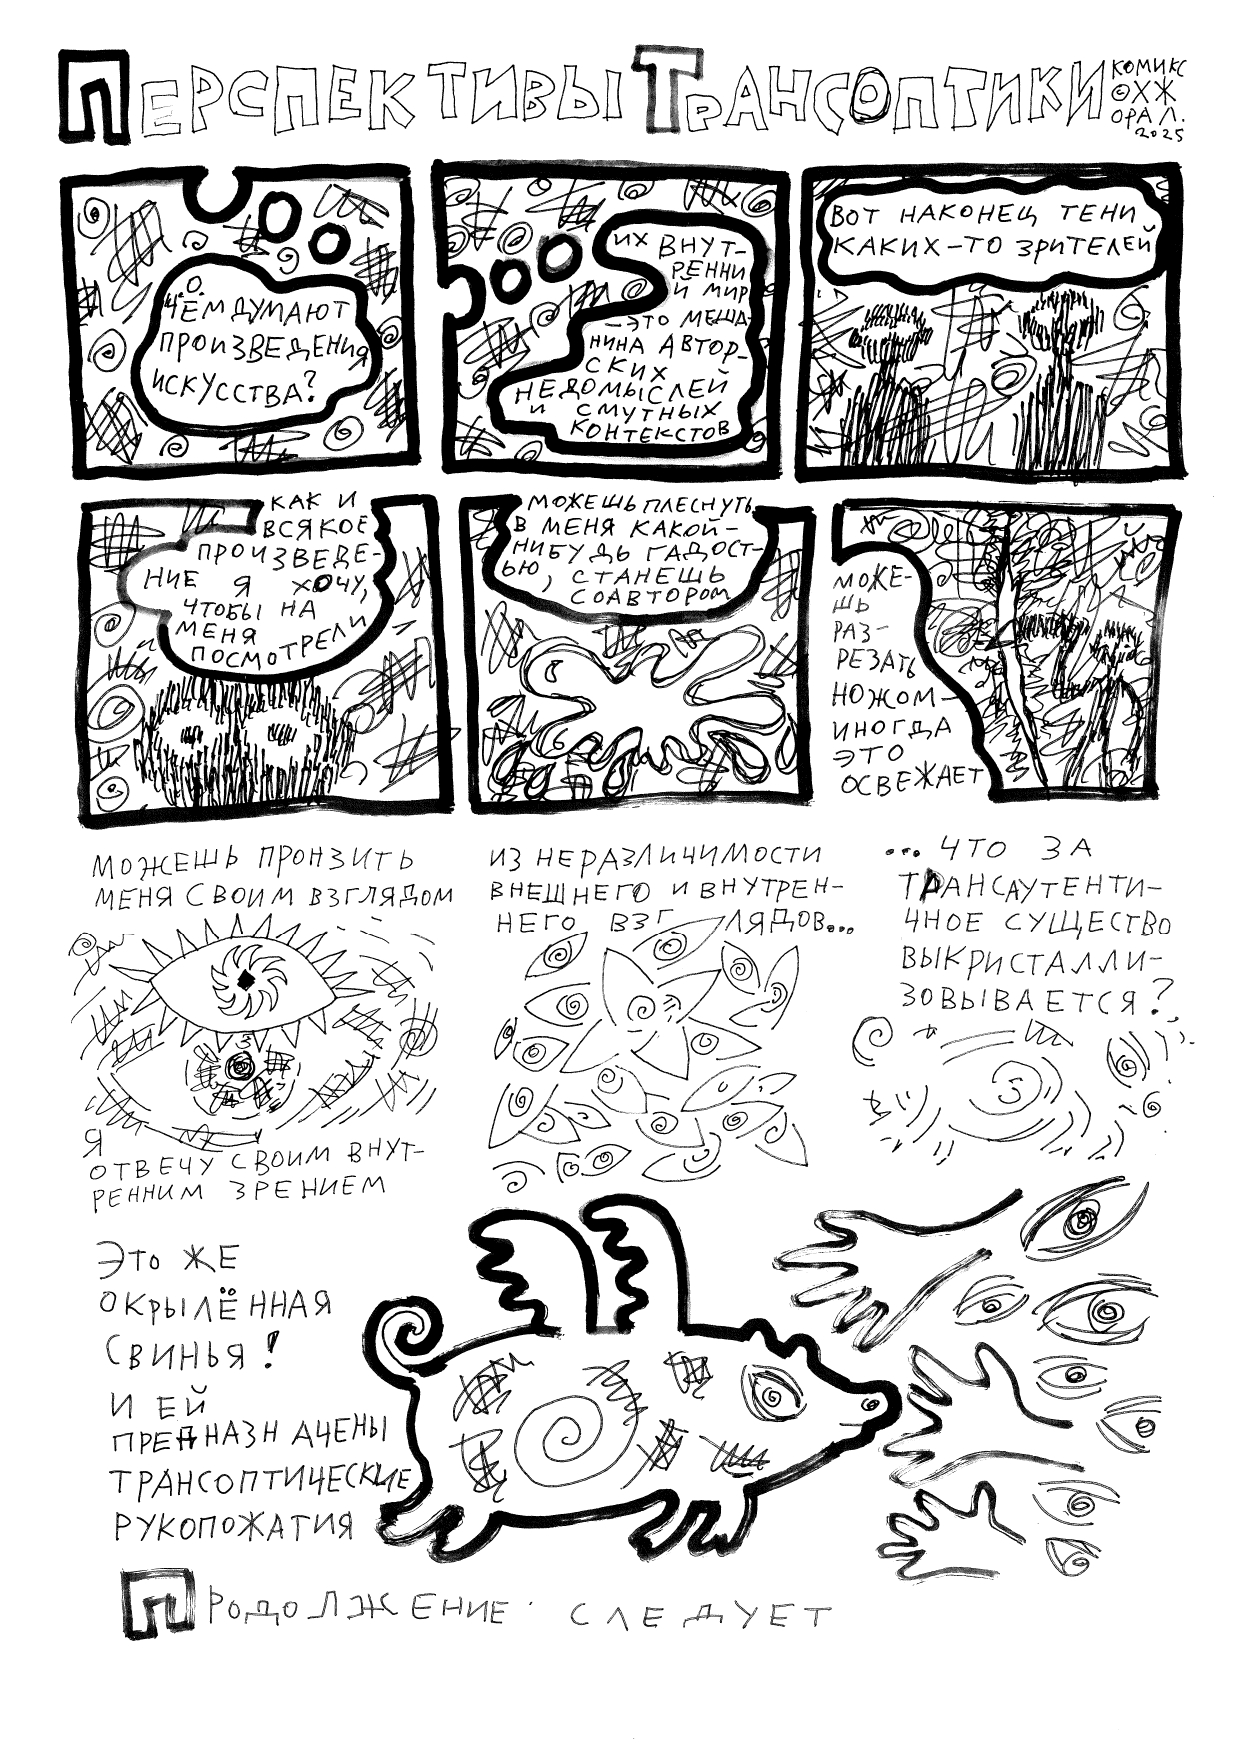 ПЕРСПЕКТИВЫ ТРАНСОПТИКИ
КОМИКС
©ХЖ
ОРАЛ.
2025
О
ЧЁМ ДУМАЮТ
ПРОИЗВЕДЕНИЯ
ИСКУССТВА?
ИХ ВНУТ-
РЕННИ
Й МИР
–ЭТО МЕША-
НИНА АВТОР-
СКИХ
НЕДОМЫСЛЕЙ
И СМУТНЫХ
КОНТЕКСТОВ
ВОТ НАКОНЕЦ ТЕНИ
КАКИХ-ТО ЗРИТЕЛЕЙ
КАК И
ВСЯКОЕ
ПРОИЗВЕДЕ-
НИЕ Я ХОЧУ,
ЧТОБЫ НА
МЕНЯ
ПОСМОТРЕЛИ
МОЖЕШЬ ПЛЕСНУТЬ
В МЕНЯ КАКОЙ-
НИБУДЬ ГАДОСТ-
ЬЮ, СТАНЕШЬ
СОАВТОРОМ
МОЖЕ-
ШЬ
РАЗ-
РЕЗАТЬ
НОЖОМ–
ИНОГДА
ЭТО
ОСВЕЖАЕТ
МОЖЕШЬ ПРОНЗИТЬ
МЕНЯ СВОИМ ВЗГЛЯДОМ
Я
ОТВЕЧУ СВОИМ ВНУТ-
РЕННИМ ЗРЕНИЕМ
ИЗ НЕРАЗЛИЧИМОСТИ
ВНЕШНЕГО И ВНУТРЕН-
НЕГО ВЗГЛЯДОВ...
...ЧТО ЗА
ТРАНСАУТЕНТИ-
ЧНОЕ СУЩЕСТВО
ВЫКРИСТАЛЛИ-
ЗОВЫВАЕТСЯ?
ЭТО ЖЕ
ОКРЫЛЁННАЯ
СВИНЬЯ!
И ЕЙ
ПРЕДНАЗНАЧЕНЫ
ТРАНСОПТИЧЕСКИЕ
РУКОПОЖАТИЯ
ПРОДОЛЖЕНИЕ СЛЕДУЕТ